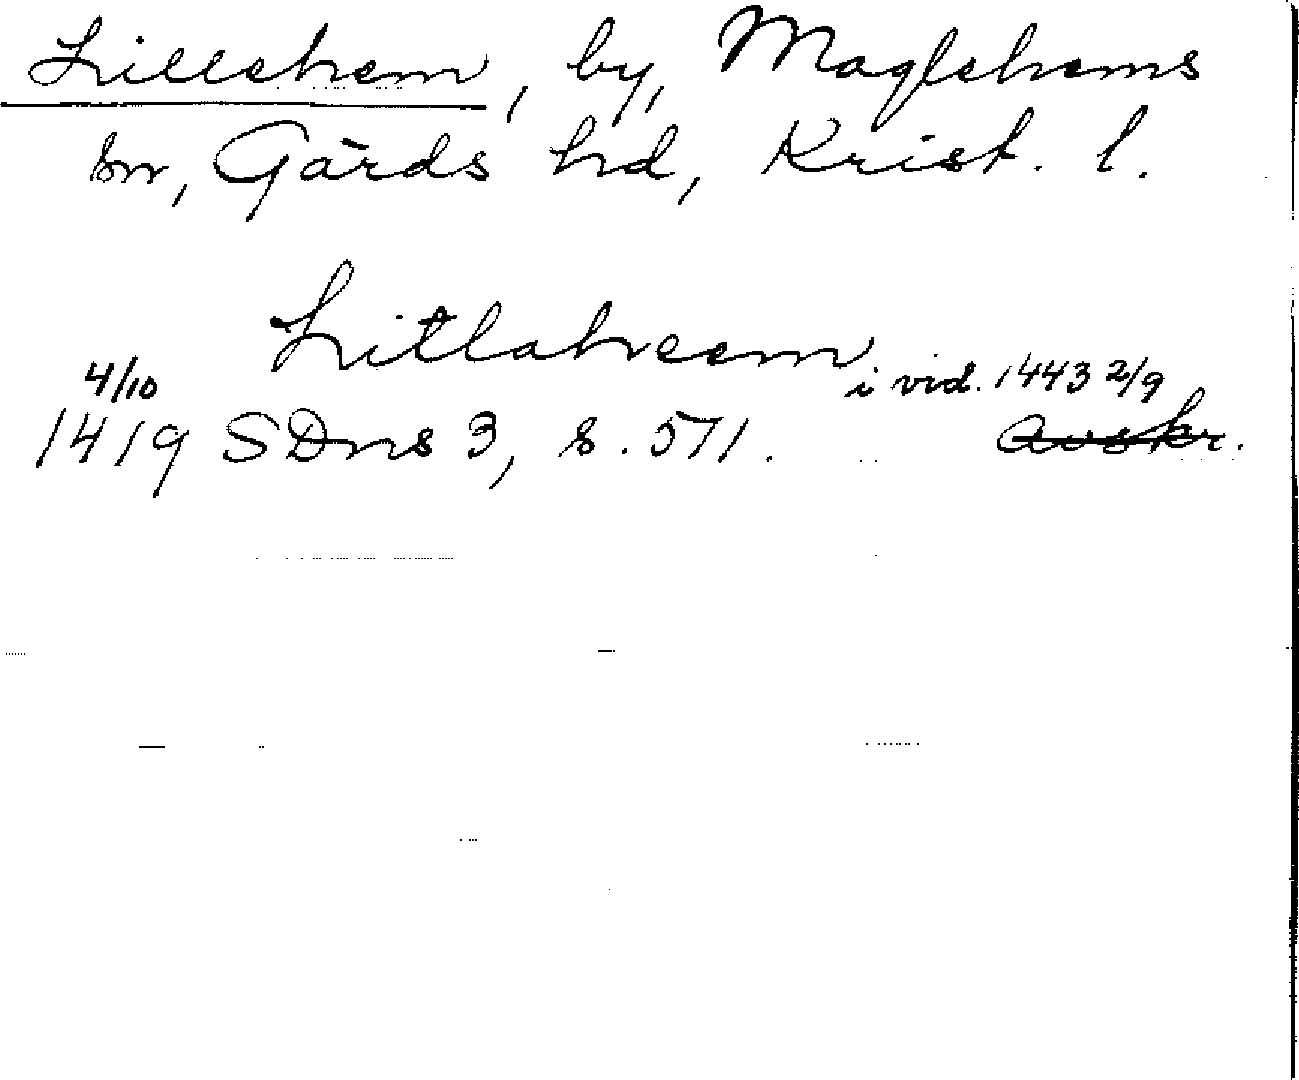 Lillehem, by, Maglehems
sn, Gärds hd, Krist. l.
Litlaheem
4/10 i vid. 1443 2/9
1419 SDns 3, s. 571. Avskr.